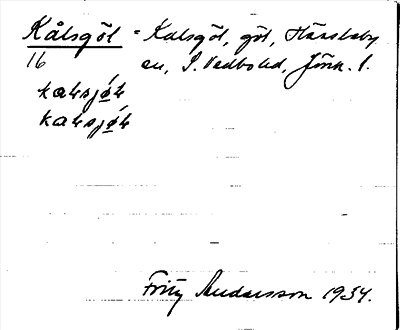 Kålsgöl = Kalsgöl, göl, Hässleby
16 sn, S. Vedbo hd, Jönk. l.
kalsjø̀l
kalsjø̀l
Fritz Andersson 1934.